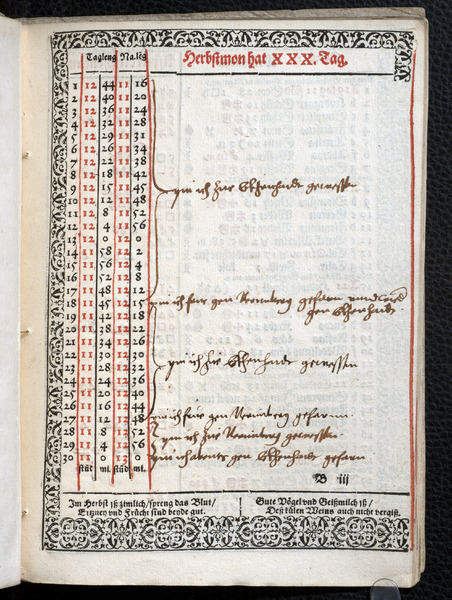 Tagleng Na.lēg Herbstmon hat XXX. Tag.
1 12 44 11 16
2 12 40 11 20
3 12 36 11 24
4 12 32 11 28
5 12 29 11 31
6 12 26 11 34
7 12 22 11 38
8 12 18 11 42
9 12 15 11 45 pin ich zur gewessen
10 12 12 11 48
11 12 8 11 52
12 12 4 11 56
13 12 0 12 0
14 11 58 12 2
15 11 56 12 4
16 11 52 12 8
17 11 48 12 12
18 11 45 12 15 pin ich gen Nurmberg gefarn unnd
19 11 42 12 18 gen
20 11 38 12 22
21 11 34 12 26
22 11 30 12 30
23 11 27 12 33 pin ich zur gewessen
24 11 24 12 36
25 11 20 12 40
26 11 16 12 44
27 11 12 12 48 pin ich gen Nurmberg gefarnn
28 11 8 12 52 pin ich zu Nurmberg gewessen
29 11 4 12 56
30 11 0 13 0 pin ich gen gefarn
stūd mi. stūd mi.
B iij
Im Herbst iß zimlich/spreng das Blut/
Ertzney vnd Frücht sind beyde gut.
Gute Vögel vnd Geißmilch iß/
Deß külen Weins auch nicht vergiß.